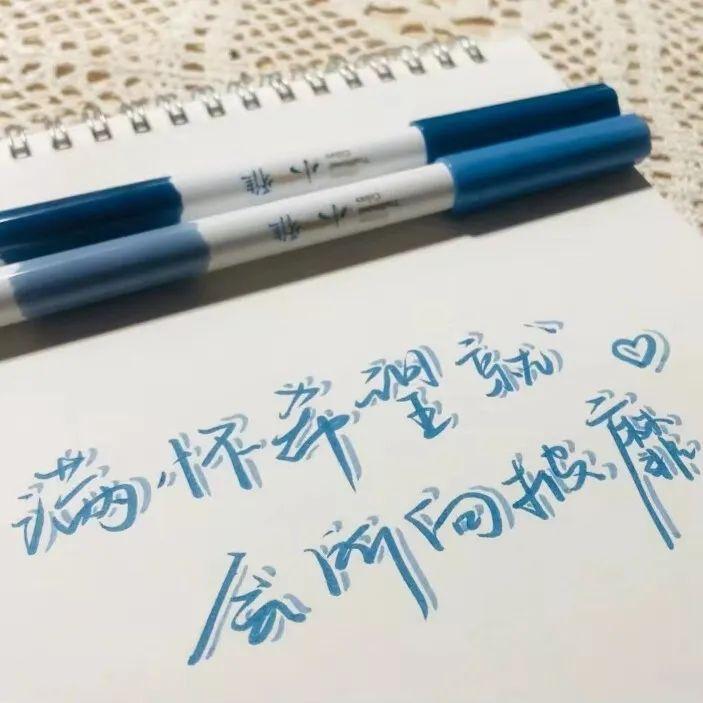 满怀希望就
会所向披靡